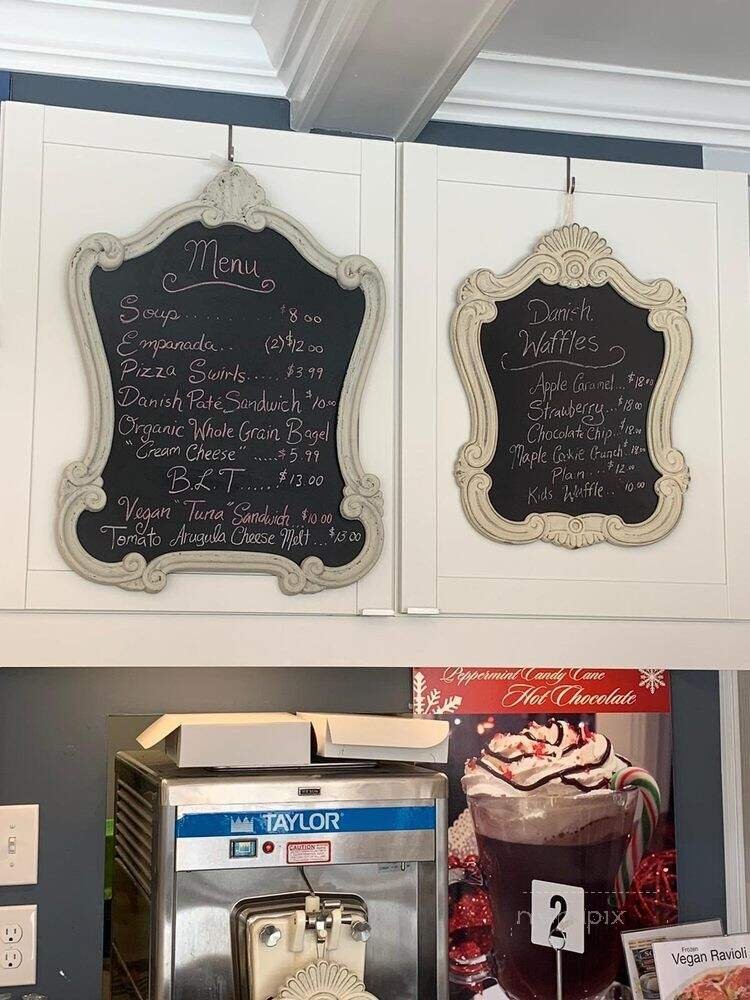 Menu
Soup......... $8.00
Empanada.. (2)$12.00
Pizza Swirls..... $3.99
Danish Paté Sandwich $10.00
Organic Whole Grain Bagel
"Cream Cheese" .....$5.99
B.L.T..... $13.00
Vegan "Tuna" Sandwich... $10.00
Tomato Arugula Cheese Melt...$13.00
Danish
Waffles
Apple Caramel...$18.00
Strawberry...$18.00
Chocolate Chip..$18.00
Maple Cookie Crunch $18.00
Plain....$12.00
Kids Waffle.. 10.00
Peppermint Candy Cane
Hot Chocolate
TAYLOR
CAUTION
2
Frozen
Vegan Ravioli